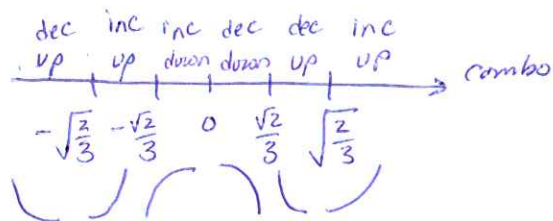 dec inc inc dec dec inc
up up down down up up
combo
-√2/3 -√2/3 0 √2/3 √2/3